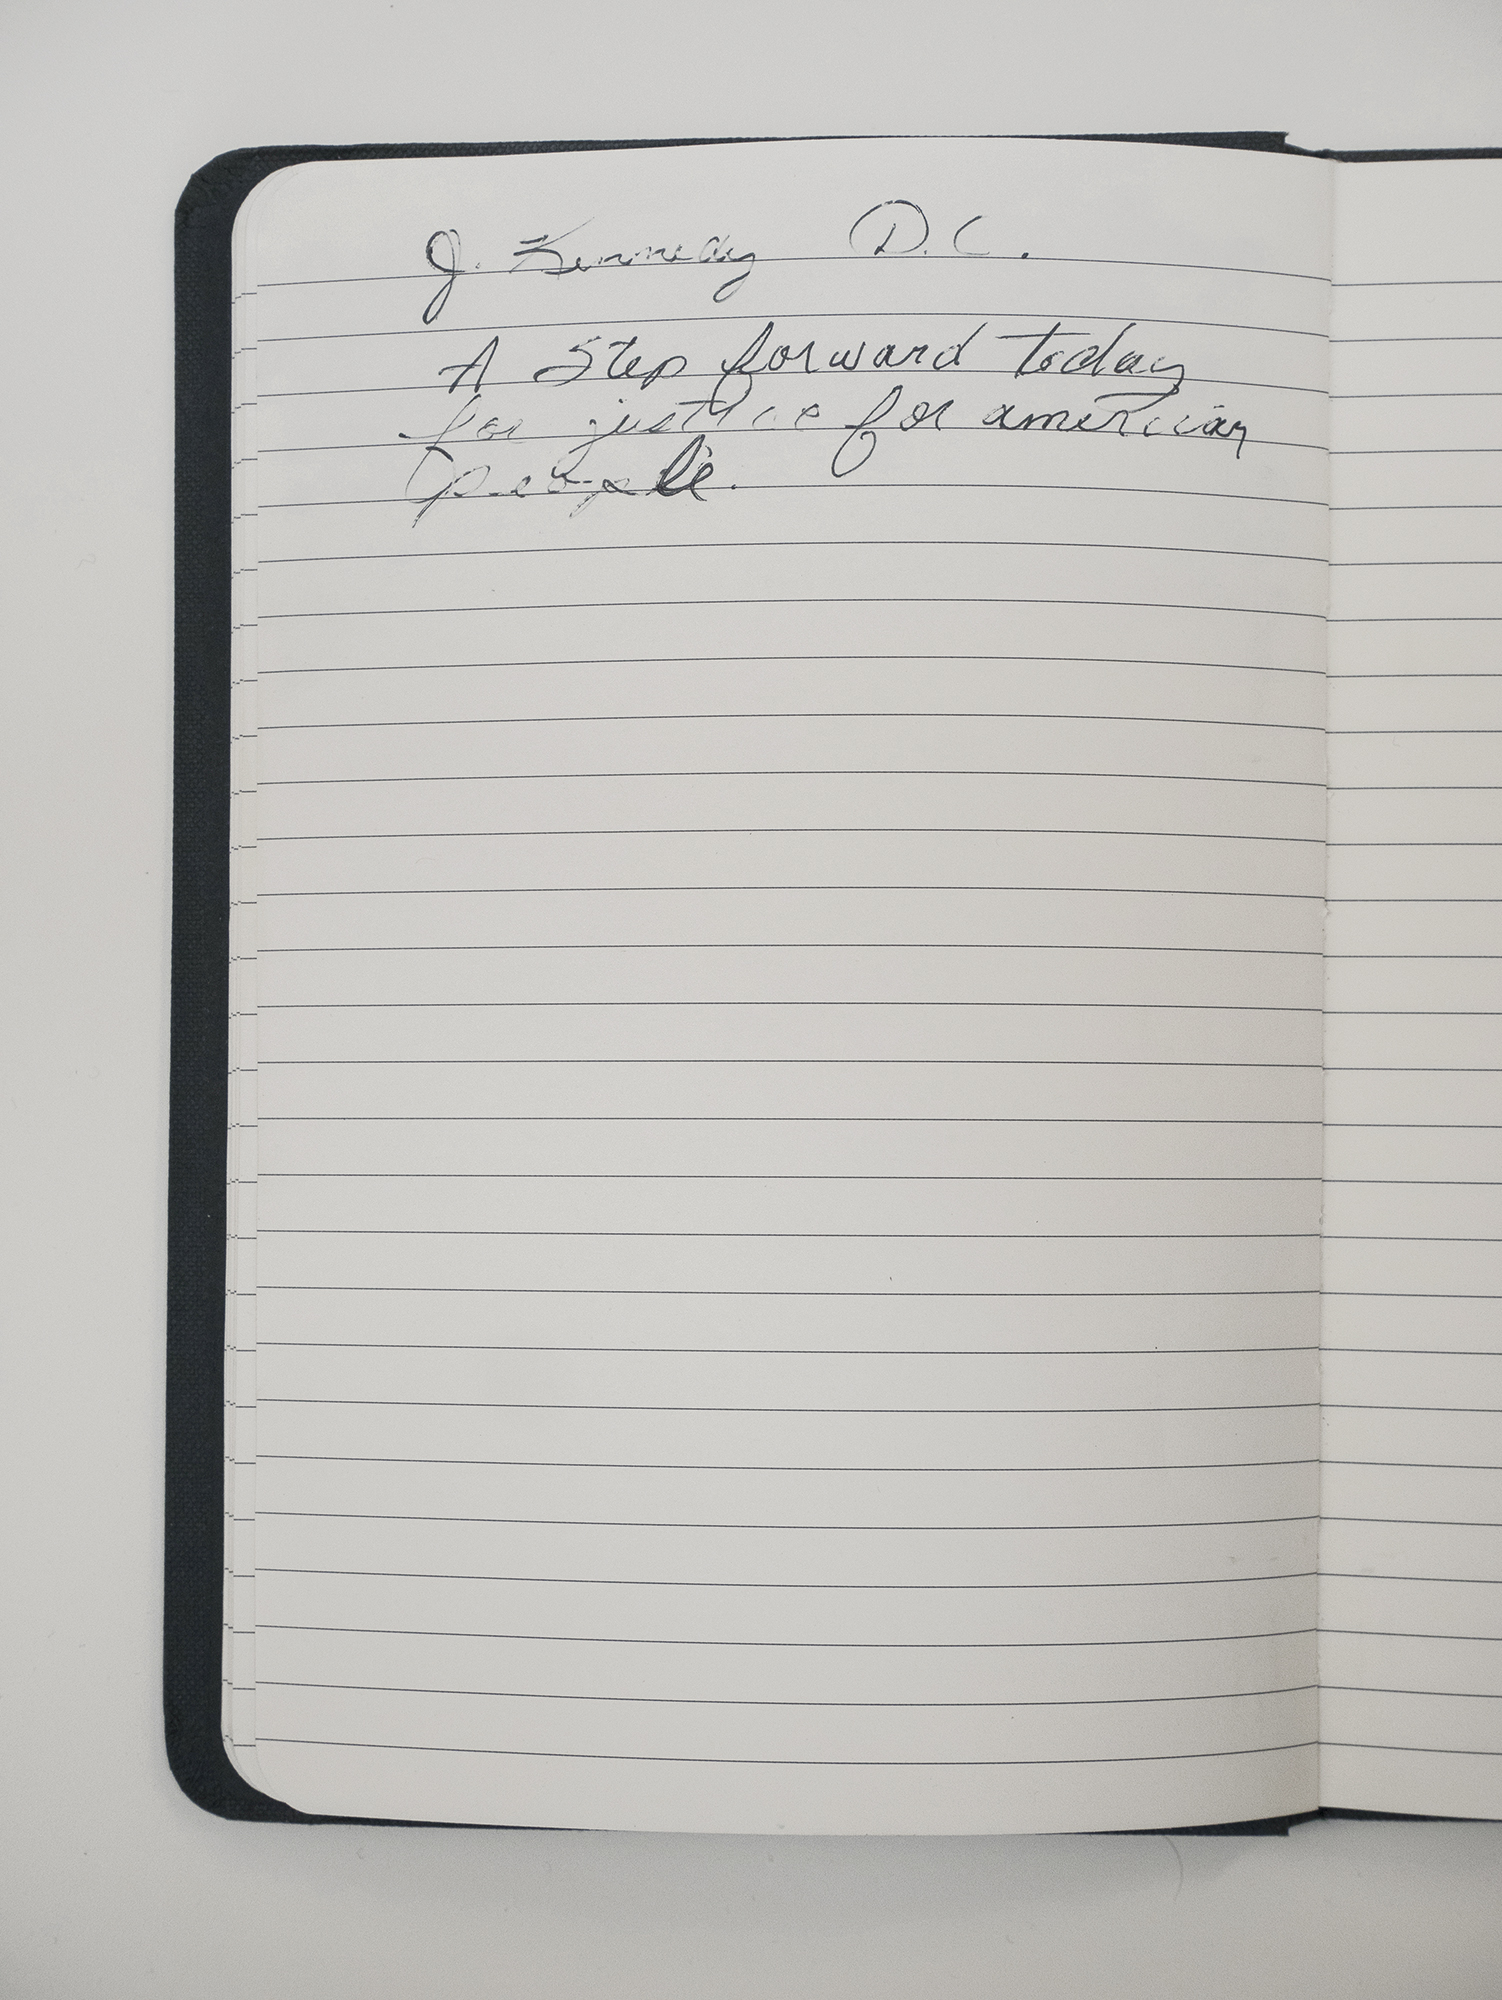 J. Kennedy D.C.
A Step forward today
for justice for american
people.